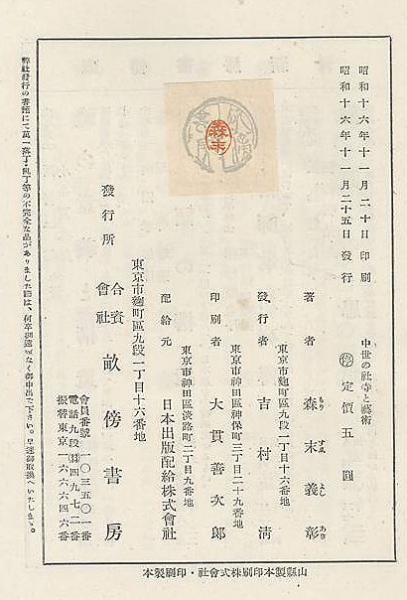 昭和十六年十一月二十日印刷
昭和十六年十一月二十五日發行
中世の社寺と藝術
定價五圓
著者 森末義彰
もり すゑ よし あき
東京市麴町區九段一丁目十六番地
發行者 吉村淸
東京市神田區神保町三丁目二十九番地
印刷者 大貫善次郎
東京市神田區淡路町二丁目九番地
配給元 日本出版配給株式會社
東京市麴町區九段一丁目十六番地
發行所 合資會社 畝傍書房
會員番號一〇三五〇一番
電話九段 四九七二番
振替東京一六六六四六番
森末
弊社發行の書籍にて萬一落丁・亂丁等の不完全な品がありました節は、何卒御遠慮なく御申出で下さい。早速御取換へいたします。
山縣製本印刷株式會社・印刷製本